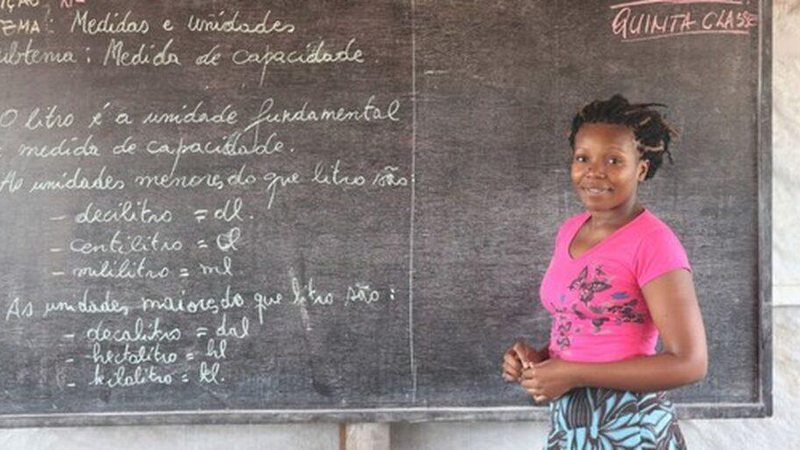 TEMA: Medidas e unidades
Subtema: Medida de capacidade.
O litro é a unidade fundamental
medida de capacidade.
As unidades menores do que litro são:
- decilitro = dl.
- centilitro = cl
- mililitro = ml.
As unidades maiores do que litro são:
- decalitro = dal
- hectolitro = hl
- kilolitro = kl.
QUINTA CLASSE